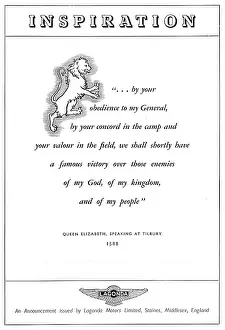 INSPIRATION
“. . . by your
obedience to my General,
by your concord in the camp and
your valour in the field, we shall shortly have
a famous victory over those enemies
of my God, of my kingdom,
and of my people”
QUEEN ELIZABETH, SPEAKING AT TILBURY
1588
LAGONDA
An Announcement issued by Lagonda Motors Limited, Staines, Middlesex, England